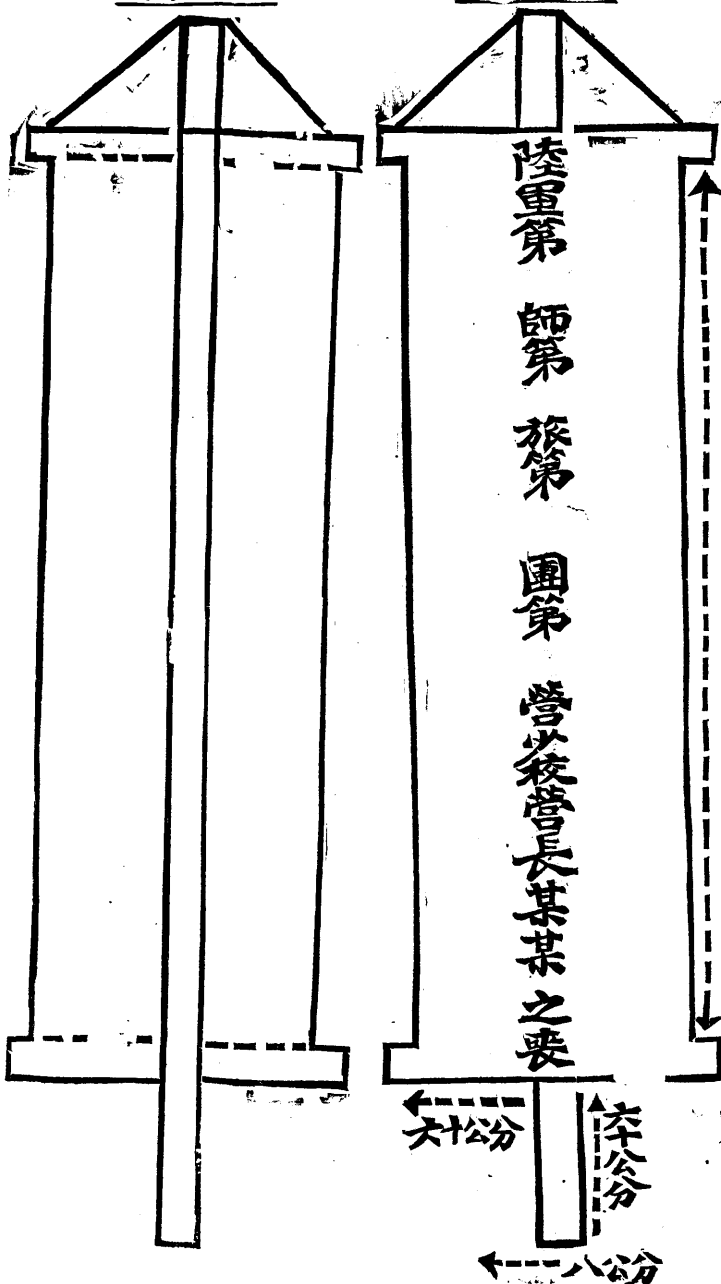 陸軍第　師第　旅第　團第　營少校營長某某之喪
六十公分
六十公分
八公分